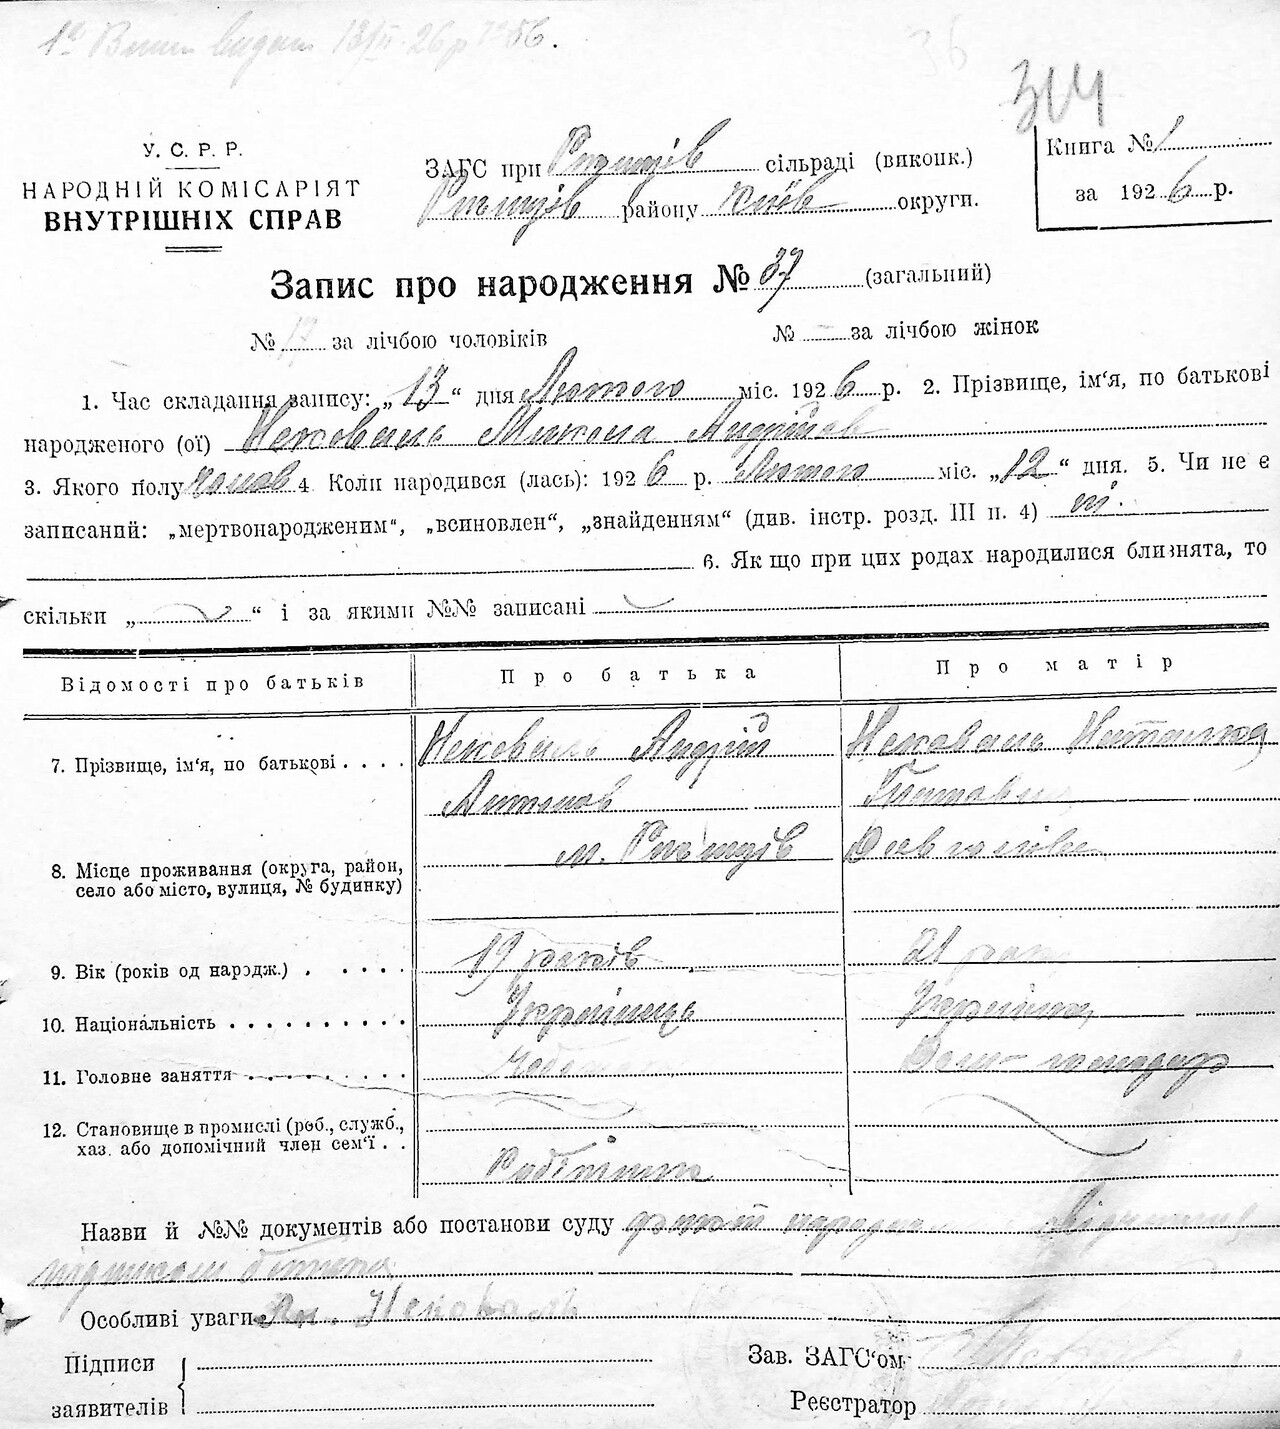 1а Вип видат 13/II-26р №56.
314
У. С. Р. Р.
НАРОДНІЙ КОМІСАРІЯТ
ВНУТРІШНІХ СПРАВ
ЗАГС при Ржищів сільраді (виконк.)
Ржищів району Київ округи.
Книга № 1
за 1926 р.
Запис про народження № 37 (загальний)
№ 17 за лічбою чоловіків № – за лічбою жінок
1. Час складання запису: „13“ дня Лютого міс. 1926 р. 2. Прізвище, ім‘я, по батькові
народженого (ої) Нековаль Микола Андріїв
3. Якого полу чолов 4. Коли народився (лась): 1926 р. Лютого міс. „12“ дня. 5. Чи не є
записаний: „мертвонародженим“, „всиновлен“, „знайденням“ (див. інстр. розд. III п. 4) ні.
6. Як що при цих родах народилися близнята, то
скільки „ “ і за якими №№ записані
Відомості про батьків Про батька Про матір
7. Прізвище, ім‘я, по батькові . . . . Нековаль Андрій Нековаль Наталка
Антонов
8. Місце проживання (округа, район, м. Ржищів
село або місто, вулиця, № будинку)
9. Вік (років од народж.) . . . . . 19 років 21 рок
10. Національність . . . . . . . . . . Українець Українка
11. Головне заняття . . . . . . . . Чобот Дом- господар
12. Становище в промислі (роб., служб.,
хаз. або допомічний член сем‘ї . . Робітник
Назви й №№ документів або постанови суду
батька
Особливі уваги Ан. Нековаль
Підписи
заявителів
Зав. ЗАГС‘ом
Реєстратор